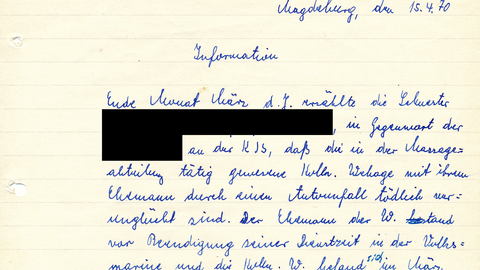 Magdeburg, den 15.4.70
Information
Ende Monat März d.J. erzählte die Schwester
, in Gegenwart der
an der KJS, daß die in der Massage=
abteilung tätig gewesene Kolln. Wehage mit ihrem
Ehemann durch einen Autounfall tödlich ver-
unglückt sind. Der Ehemann der W. stand
vor Beendigung seiner Dienstzeit in der Volks=
marine und die Kolln. W. befand sich im März